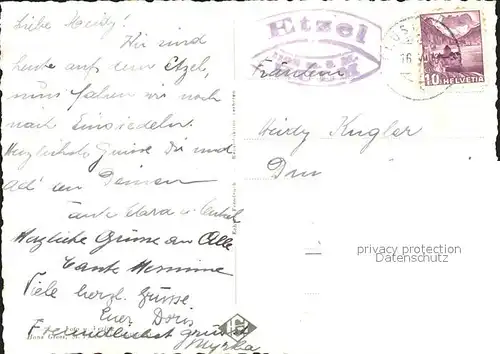 Liebe Heidy!
Wir sind
heute auf dem Etzel,
nun fahren wir noch
nach Einsiedeln.
Herzlichste Grüsse Dir und
all' den Deinen
Tante Clara u. Onkel
Herzliche Grüsse an Alle
Tante Hermine
Viele herzl. Grüsse
Euer Doris
Freundlichst grüsst
Myrha
Hans Gross, St.
Etzel
Fräulein
Heidy Kugler
10 HELVETIA
privacy protection